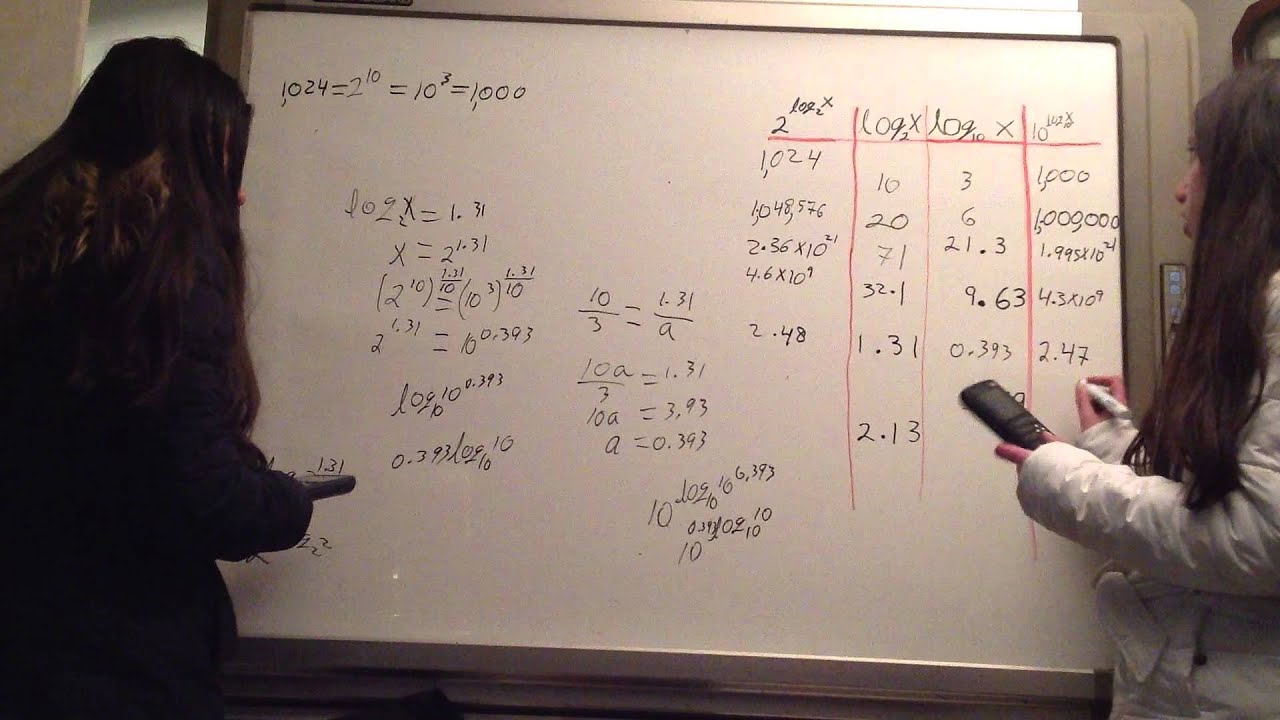 1,024=2^10 = 10^3=1,000
log₂x = 1.31
x = 2^1.31
(2^10)^(1.31/10) = (10^3)^(1.31/10)
2^1.31 = 10^0.393
log₁₀10^0.393
0.393log₁₀10
10/3 = 1.31/a
10a/3 = 1.31
10a = 3.93
a = 0.393
10^(log₁₀10^0.393)
10^(0.393log₁₀10)
1.31
2^(log₂x) log₂x log₁₀ x
1,024 10 3 1,000
1,048,576 20 6 1,000,000
2.36x10^21 71 21.3 1.995x10^21
4.6x10^9 32.1 9.63 4.3x10^9
2.48 1.31 0.393 2.47
2.13